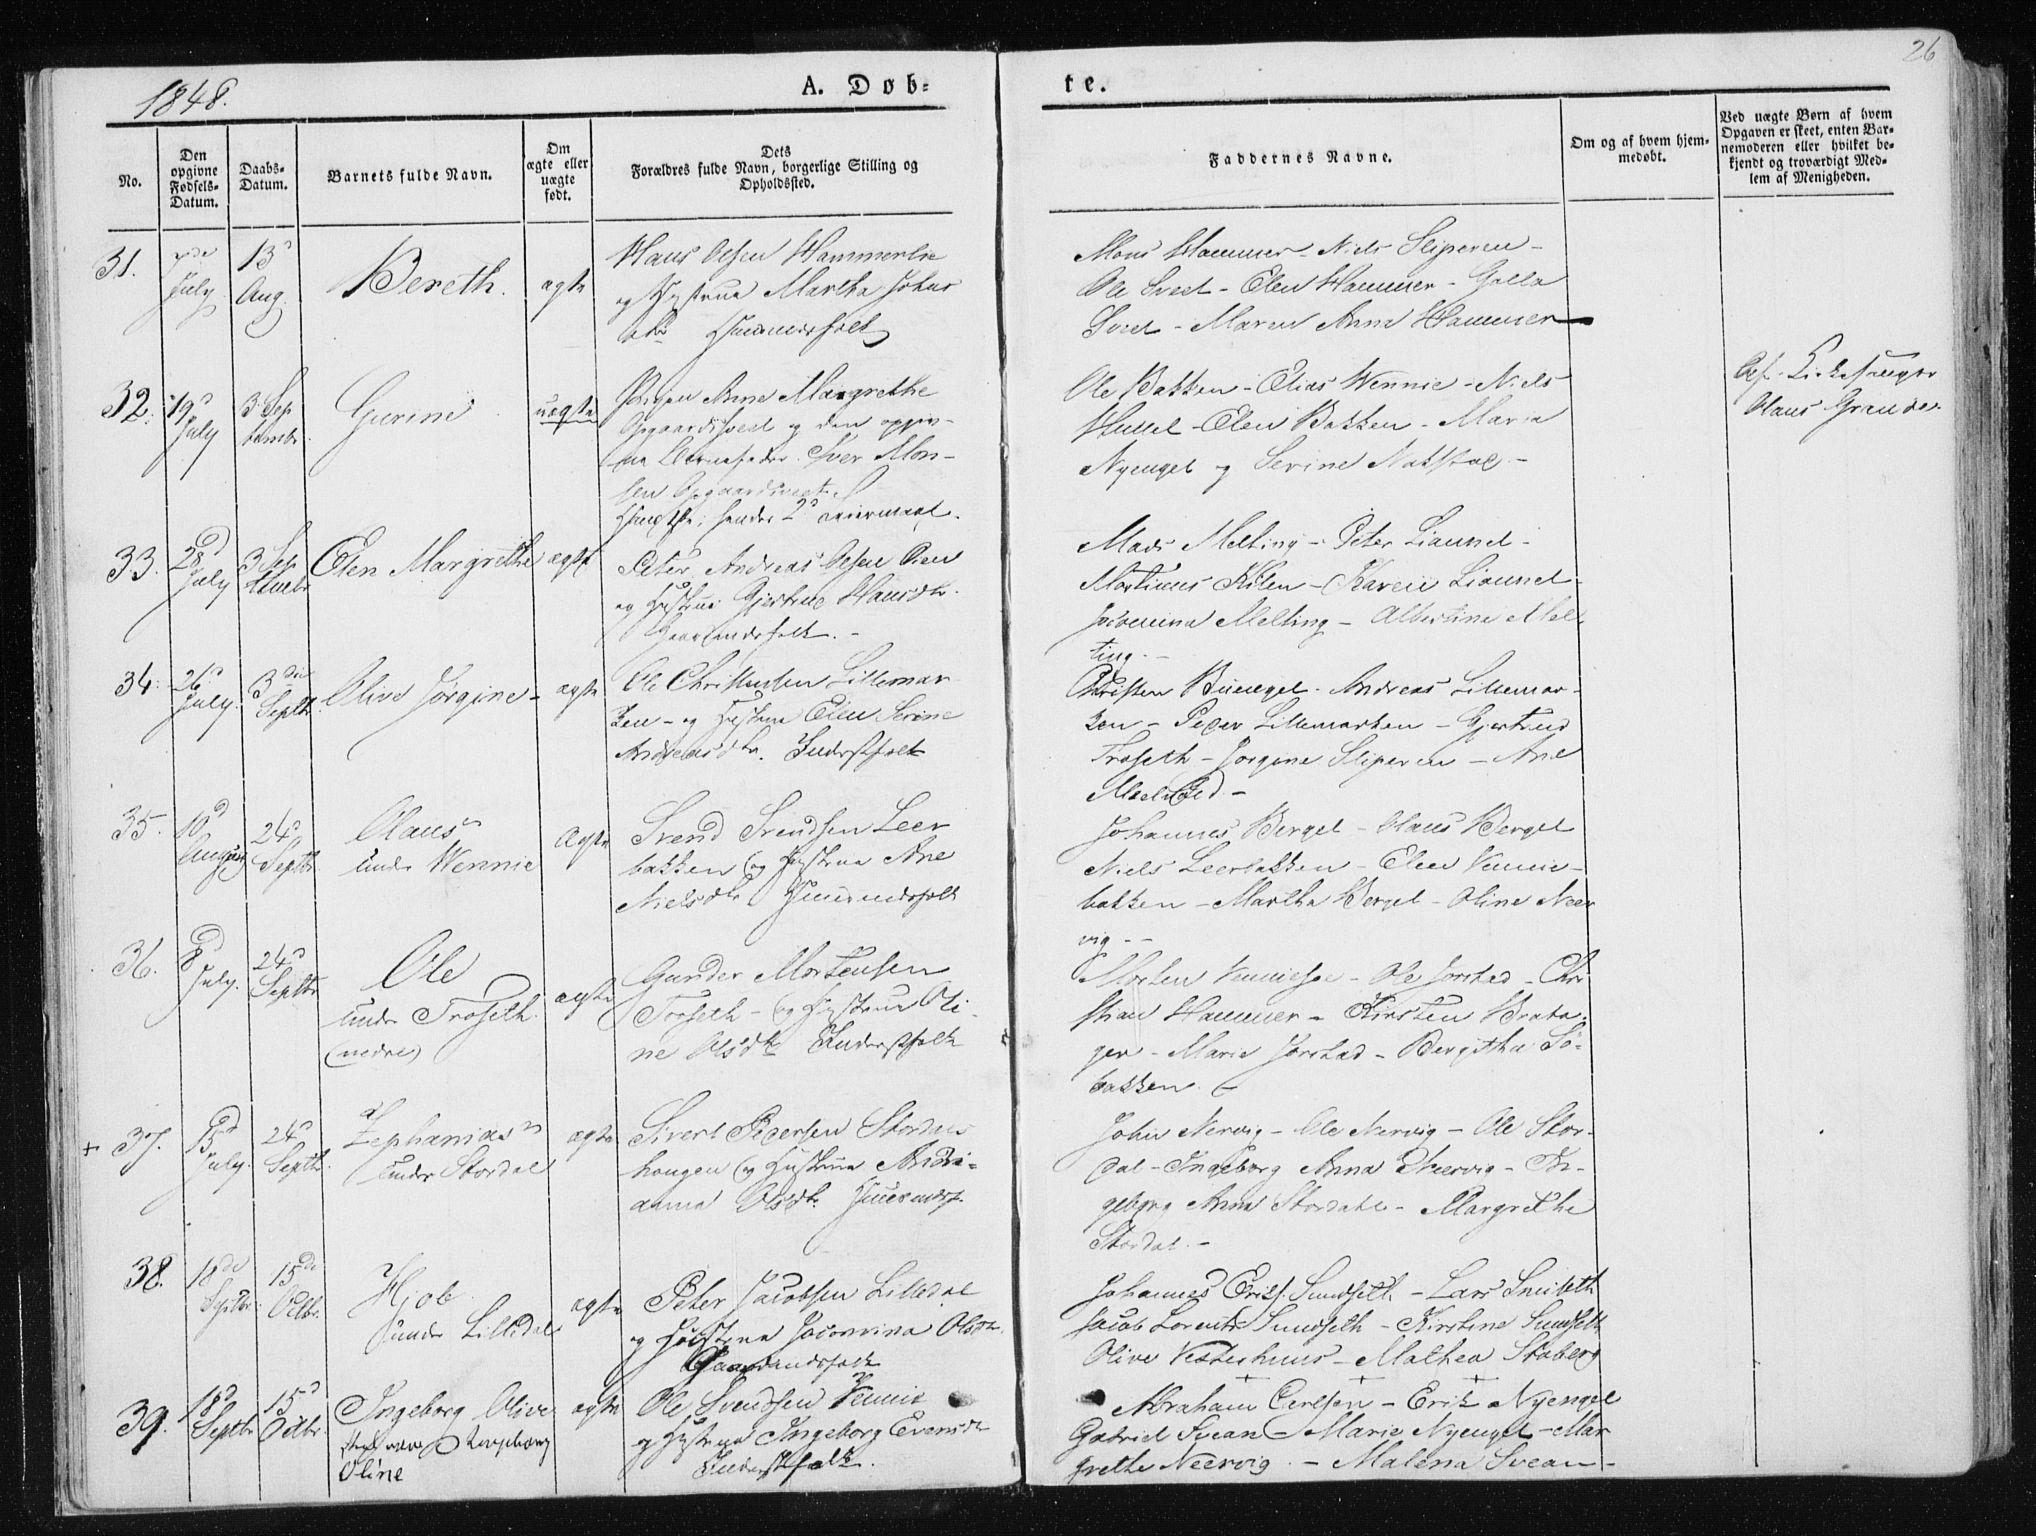 26
1848.
A. Døb=
te.
No.
Den opgivne Fødsels-Datum.
Daabs-Datum.
Barnets fulde Navn.
Om ægte eller uægte født.
Dets Forældres fulde Navn, borgerlige Stilling og Opholdssted.
Faddernes Navne.
Om og af hvem hjemmedøbt.
Ved uægte Børn af hvem Opgaven er skeet, enten Barnemoderen eller hvilket bekjendt og troværdigt Medlem af Menigheden.
31.
7de July
13d Aug.
Bereth.
ægte
Hans Olsen Hammerlie
og Hustrue Martha Johns
dtr Huusmandsfolk
Mons Hammer - Niels Sliperen -
Ole Sveet - Elen Hammer - Golla
Sveet - Maren Anna Hammer
32.
19d July
3 September
Gurine
uægte
Pigen Anne Margrethe
Opgaardshveet og den opgiv-
ne Barnefader Iver Mon-
sen
hendes 2d Leiermaal.
Ole Bakken - Elias Wennie - Niels
Hussel - Elen Bakken - Maria
Nyenget og Serine Nakstad -
Kirkesanger
Olaus Grande.
33.
28d July
3 September
Elen Margrethe
ægte
Peter Andreas Olsen Oien
og Hustrue Gjertrue Hansdtr.
Gaardmandsfolk. -
Mads Melting - Peter Liaunet -
Martinus Kilen - Karen Liaunet -
Melting - Albertina Mel-
ting. -
34.
26d July.
3die Septbr.
Olive Jørgine -
ægte
Ole Christensen Lillemar
ken - og Hustrue Elen Serine
Andreasdtr. Inderstfolk
Christen Buenget. Andreas Lillemar-
ken - Peder Lillemarken - Gjertrud
Troseth - Jørgine Sliperen - Ane
35.
10d August
24d Septbr.
Olaus
under Wennie
ægte
Svend Svendsen Leer
bakken og Hustrue Ane
Nielsdtr Huusmandsfolk
Johannes Berget - Olaus Berget
Niels Leerbakken - Elen Vennie-
bakken - Martha Berget - Oline Neer
vig - -
36.
8d July.
24d Septbr
Ole
under Troseth
(nedre)
ægte
Gunder Mortensen
Troseth - og Hustrue Oli-
ne Olsdtr Inderstfolk
Morten Vennieseet - Ole Jørstad - Chri
stian Hammer - Kirsten Brata-
ger - Marie Jørstad - Bergitha Sø-
bakken. -
+ 37.
15d July.
24d Septbr.
Zephanias
under Stordal
ægte
Sivert Pedersen Stordal
hougen og Hustrue Andri-
anna Olsdtr. Huusmandsf.
John Nervig - Ole Nervig - Ole Stor-
dal - Ingeborg Anna Neervig - In-
geborg Anna Stordahl - Margrethe
Stordal. -
38.
18de Septbr.
15de Octbr.
Hjob
under Lilledal
ægte
Peter Jacobsen Lilledal
og Hustrue Jacomina Olsdtr.
Gaardmandsfolk
Johannes Eriks. Sundseth - Lars Snuseth
Jacob Lorents Sundseth - Kirstine Sundseth
Olive Vesterhuus - Mathea Staberg
39.
18d Septbr
15d Octbr.
Ingeborg Olive
Oline
ægte
Ole Svendsen Vennie
og Hustrue Ingeborg Evensdtr
Inderstfolk.
Abraham Carlsen - Erik Nyenget
Gabriel Svean - Marie Nyenget - Mar
grethe Neervig. - Malena Svean -